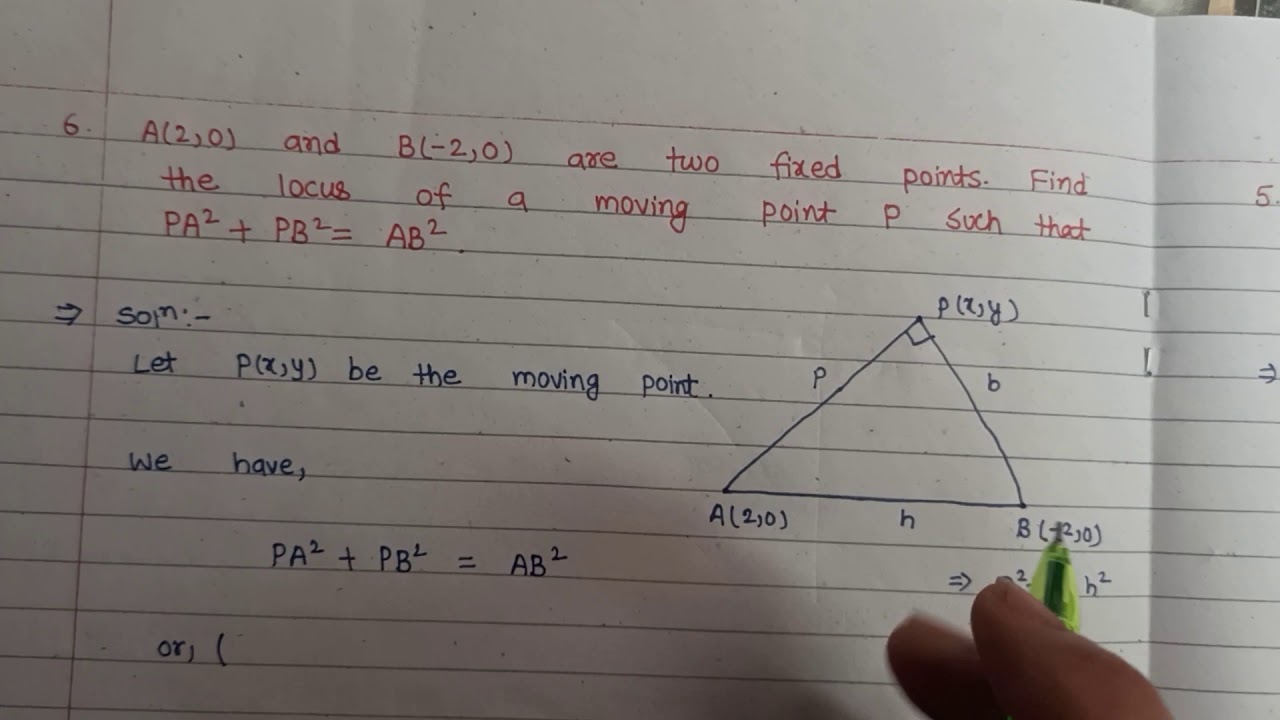 6. A(2,0) and B(-2,0) are two fixed points. Find
the locus of a moving point P such that
PA² + PB² = AB².
5.
⇒ Soln:-
Let P(x,y) be the moving point.
We have,
PA² + PB² = AB²
or, (
P(x,y)
p
b
A(2,0)
h
B(-2,0)
⇒ h²
⇒